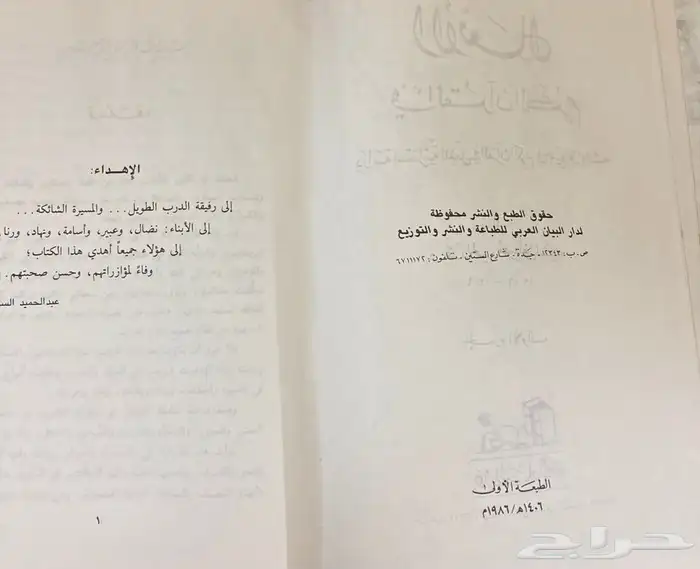 حقوق الطبع والنشر محفوظة
لدار البيان العربي للطباعة والنشر والتوزيع
ص.ب: ١٢٣٤٣ - جدة. شارع الستين - تلفون: ٦٧١١١٧٢
الطبعة الأولى
١٤٠٦هـ/١٩٨٦م
الإهداء:
إلى رفيقة الدرب الطويل... والمسيرة الشائكة...
إلى الأبناء: نضال، وعبير، وأسامة، ونهاد، ورنا
إلى هؤلاء جميعاً أهدي هذا الكتاب؛
وفاءً لمؤازراتهم، وحسن صحبتهم.
عبدالحميد
١
حراج